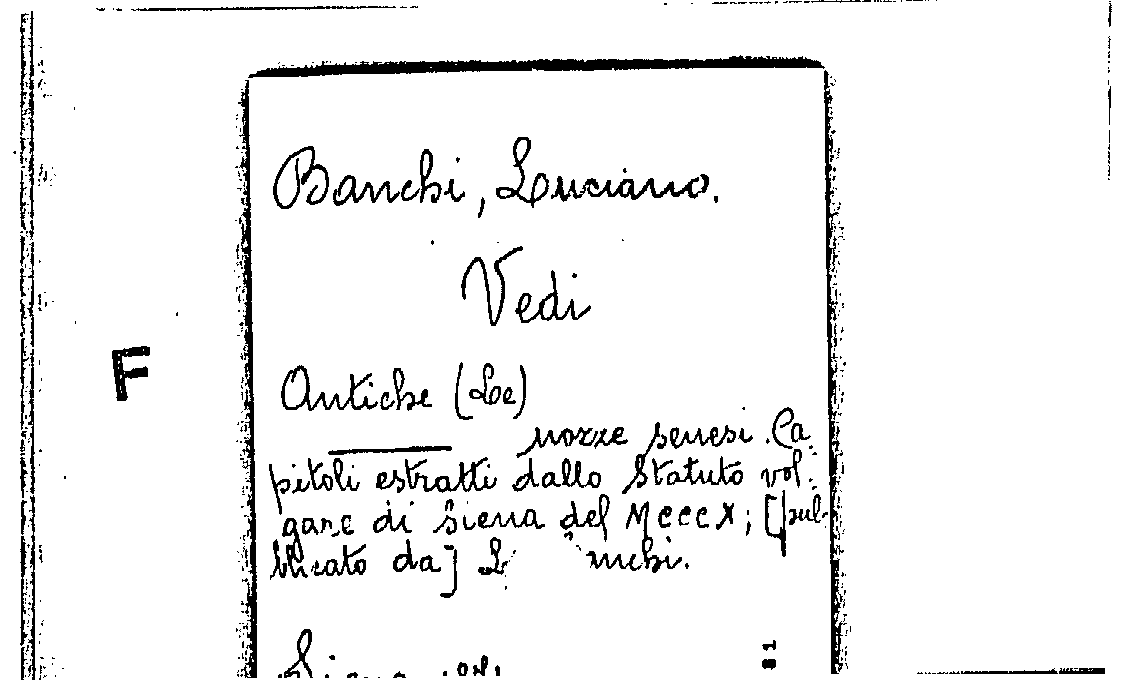 Banchi, Luciano.
Vedi
F
Antiche (Le)
nozze senesi. Ca
pitoli estratti dallo Statuto vol-
gare di Siena del MCCCX; [pub-
blicato da] L
Siena
81